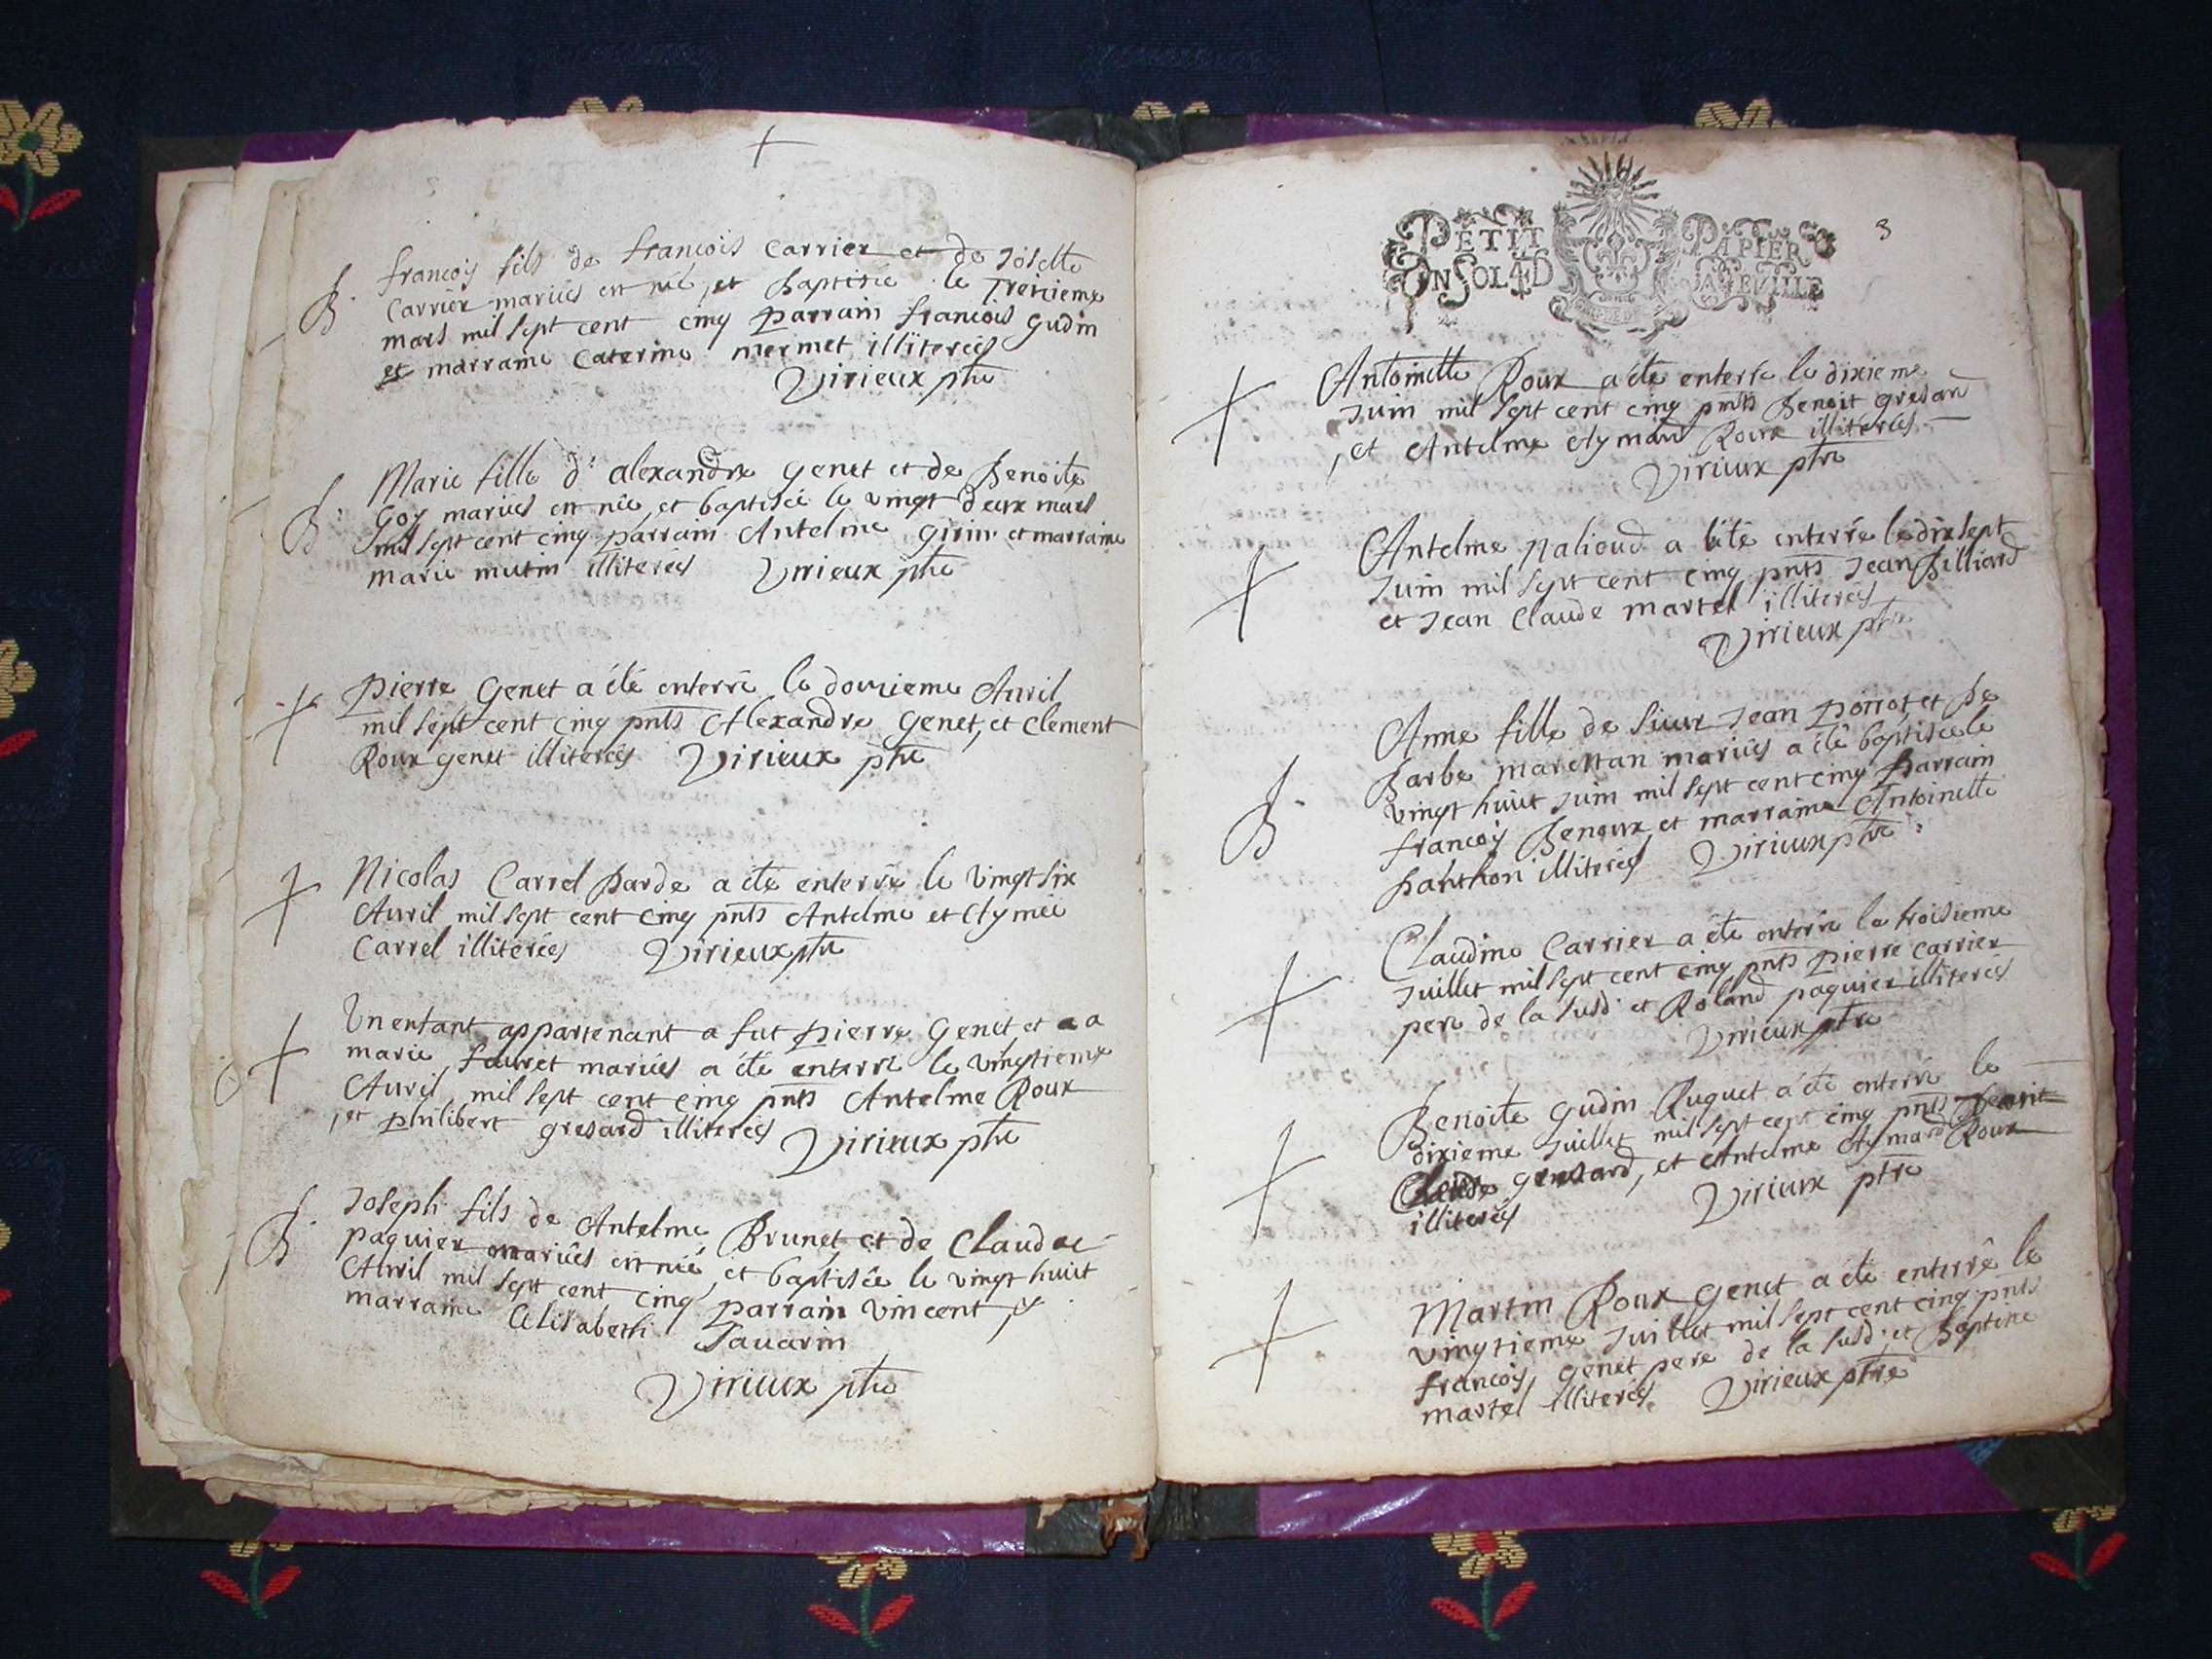 B. francois fils de francois Carrier et de Josette
Carrier mariés est né, et baptisé le Treizieme
mars mil sept cent cinq parrain francois gudin
et marraine Caterine mermet illiterés
Virieux ptre
B. Marie fille d'alexandre genet et de Benoite
Goy mariés est née, et baptisée le vingt deux mars
mil sept cent cinq parrain Antelme girin et marraine
marie mutin illiterés Virieux ptre
Pierre Genet a été enterré le douzieme Avril
mil sept cent cinq pnts Alexandre genet, et Clement
Roux genet illiterés Virieux ptre
Nicolas Carrel barde a été enterré le vingt six
Avril mil sept cent cinq pnts Antelme et Aymée
Carrel illiterés Virieux ptre
Un enfant appartenant a fut pierre genet et a a
marie mariés a été enterré le vingtieme
Avril mil sept cent cinq pnts Antelme Roux
, et philibert gresard illiterés Virieux ptre
B. Joseph fils de Antelme Brunet et de Claudae
paquier mariés est né, et baptisée le vingt huit
Avril mil sept cent cinq parrain Vincent et
marraine Elisabeth Savarin
Virieux ptre
3
PETIT PAPIER
UN SOL 4D LA FEUILLE
Antoinette Roux a été enterré le dixieme
Juin mil sept cent cinq pnts Benoit gresard
, et Antelme Aymard Roux illiterés
Virieux ptre
Antelme palioud a été enterré le dix sept
Juin mil sept cent cinq pnts Jean Billiard
et Jean Claude martel illiterés
Virieux ptre
B. Anne fille de sieur Jean poirrot et de
Barbe marestan mariés a été baptisée le
vingt huit Juin mil sept cent cinq parrain
francois Benoux et marraine Antoinette
illiterés Virieux ptre
Claudine Carrier a été enterré le troisieme
Juillet mil sept cent cinq pnts pierre Carrier
pere de la susd. et Roland paquier illiterés
Virieux ptre
Benoite gudin Ruguet a été enterré le
dixieme Juillet mil sept cent cinq pnts Benoit
Claude gresard, et Antelme Aymard Roux
illiterés Virieux ptre
Martin Roux genet a été enterré le
vingtieme Juillet mil sept cent cinq pnts
francois genet pere de la susd. et Baptiste
martel illiterés Virieux ptre